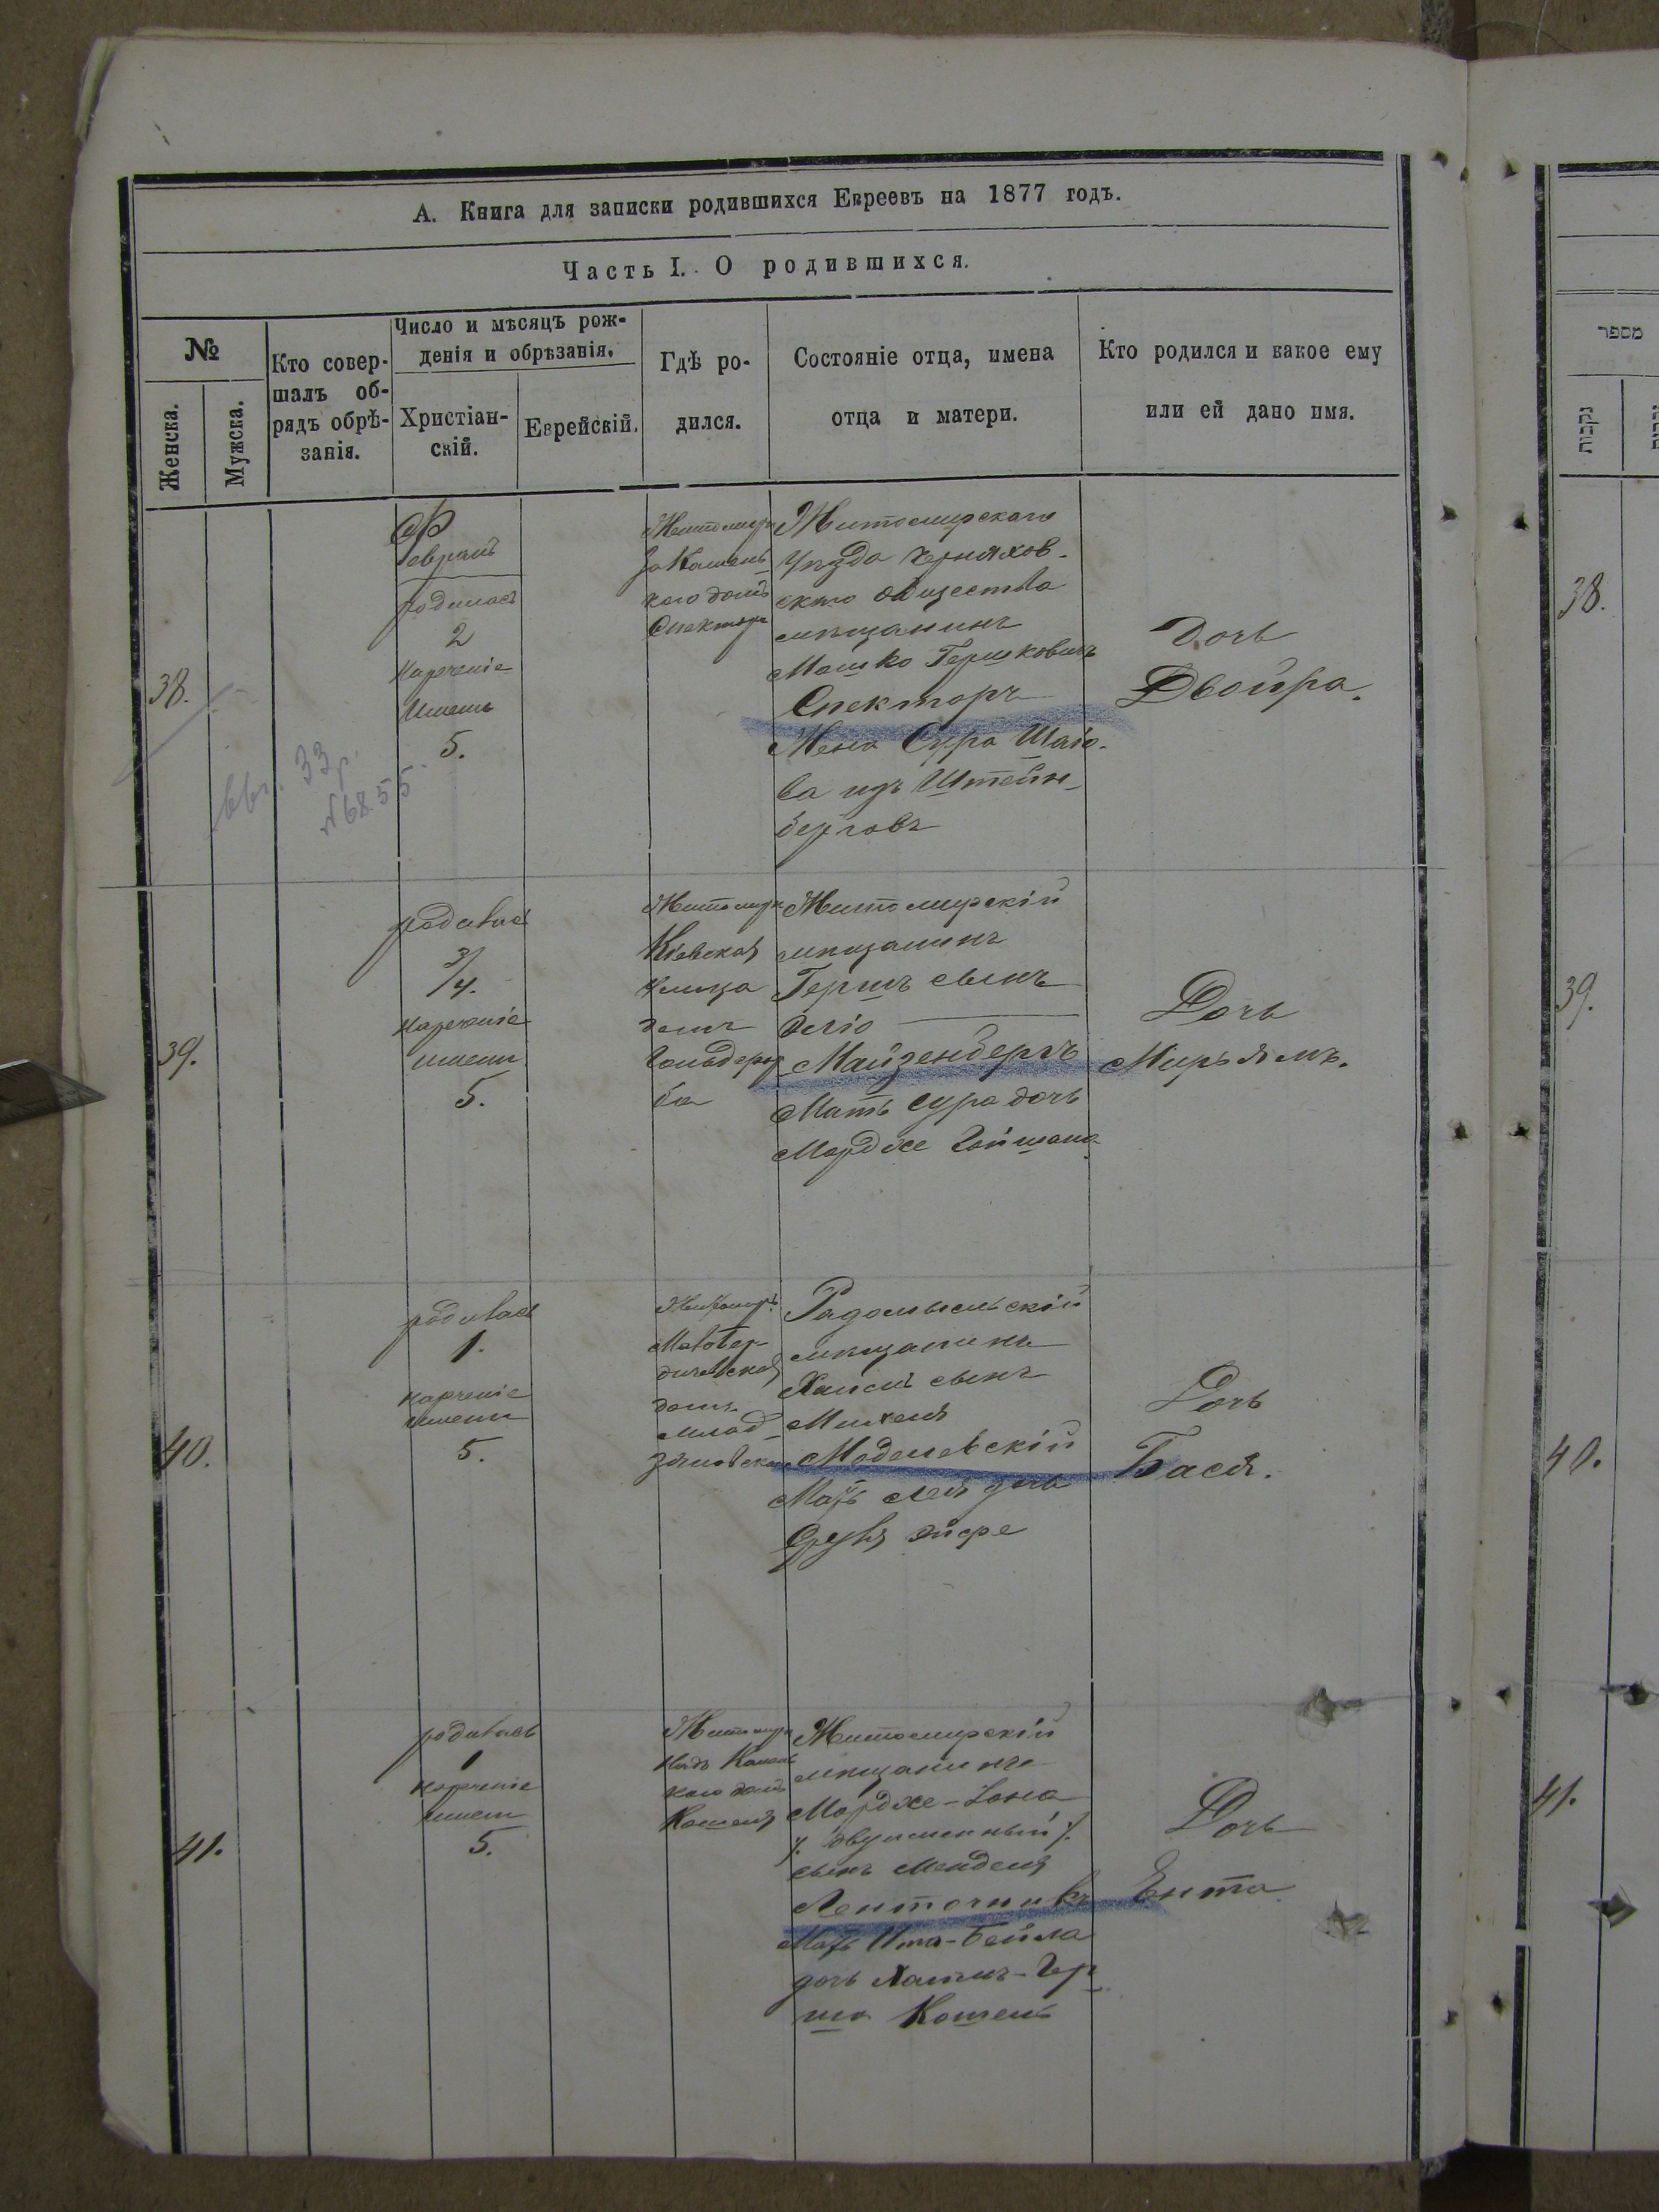 А. Книга для записки родившихся Евреевъ на 1877 годъ.
Часть I. О родившихся.
№
Женска.
Мужска.
Кто совер-
шалъ об-
рядъ обрѣ-
занія.
Число и мѣсяцъ рож-
денія и обрѣзанія.
Христіан-
скій.
Еврейскій.
Гдѣ ро-
дился.
Состояніе отца, имена
отца и матери.
Кто родился и какое ему
или ей дано имя.
38.
Февраль
родилась
2
нареченіе
имени
5.
Житомиръ
за Камень
кого домъ
Спектора
Житомирскаго
уѣзда Черняхов-
скаго общества
мѣщанинъ
Мошко Гершковичъ
Спекторъ
Жена Сура Шаіо-
ва изъ Штейн-
берговъ
Дочь
Двойра.
33 р.
№ 6855
39.
родилась
3/4.
нареченіе
имени
5.
Житомиръ
Кіевская
улица
домъ
ба
Житомирскій
мѣщанинъ
Гершъ сынъ
Майзенбергъ
Мать Сура дочь
Мордхе
Дочь
Мирьямъ.
40.
родилась
1.
нареченіе
имени
5.
Житомиръ
Малобер-
дичевская
домъ
Млод-
зяновскаго
Радомысльскій
мѣщанинъ
Хаимъ сынъ
Михеля
Моделевскій
Мать Лея дочь
Дочь
Бася.
41.
родилась
1
нареченіе
имени
5.
Житомиръ
надъ Камень
кою домъ
Житомирскій
мѣщанинъ
Мордхе-Іона
/. двуименный /.
сынъ Менделя
Ленточникъ
Мать Ита-Бейла
дочь Хаимъ-Гер
ша
Дочь
Ента
מספר
נקבות
38.
39.
40.
41.